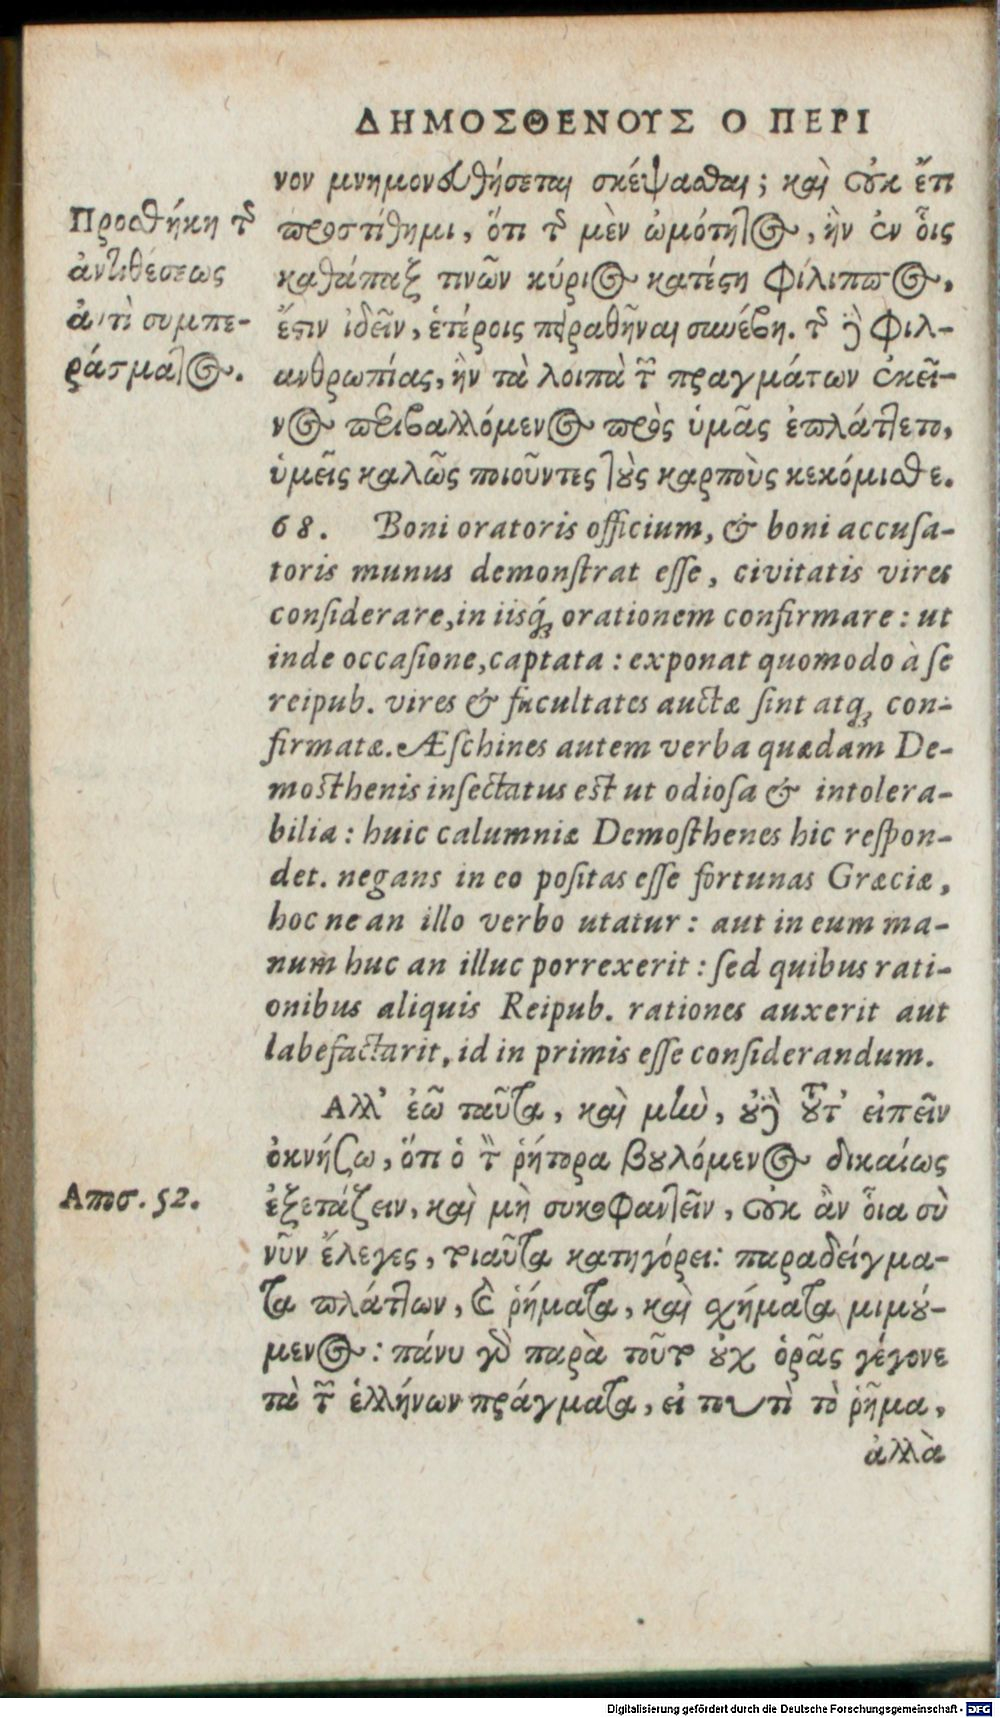 ΔΗΜΟΣΘΕΝΟΥΣ Ο ΠΕΡΙ
νον μνημονευθήσεται σκέψασθαι; καὶ οὐκ ἔτι
προστίθημι, ὅτι τῆς μὲν ὠμότητος, ἣν ἐν οἷς
καθάπαξ τινῶν κύριος κατέστη Φίλιππος,
ἔστιν ἰδεῖν, ἑτέροις πειραθῆναι συνέβη. τῆς δὲ Φιλ-
ανθρωπίας, ἣν τὰ λοιπὰ τῶν πραγμάτων ἐκεῖ-
νος περιβαλλόμενος πρὸς ὑμᾶς ἐπλάττετο,
ὑμεῖς καλῶς ποιοῦντες τοὺς καρποὺς κεκόμισθε.
Προσθήκη τῆς
ἀντιθέσεως
ἀντὶ συμπε-
ράσματος.
68. Boni oratoris officium, & boni accusa-
toris munus demonſtrat eſſe, civitatis vires
conſiderare, in iisq; orationem confirmare: ut
inde occaſione, captata: exponat quomodo à ſe
reipub. vires & facultates auctæ ſint atq; con-
firmatæ. Æſchines autem verba quædam De-
moſthenis inſectatus eſt ut odioſa & intolera-
bilia: huic calumniæ Demoſthenes hic reſpon-
det. negans in eo poſitas eſſe fortunas Græciæ,
hoc ne an illo verbo utatur: aut in eum ma-
num huc an illuc porrexerit: ſed quibus rati-
onibus aliquis Reipub. rationes auxerit aut
labefactarit, id in primis eſſe conſiderandum.
Αλλ' ἐῶ ταῦτα, καὶ μὴν, οὐδὲ τοῦτ' εἰπεῖν
ὀκνήσω, ὅτι ὁ τὸν ῥήτορα βουλόμενος δικαίως
ἐξετάζειν, καὶ μὴ συκοφαντεῖν, οὐκ ἂν οἷα σὺ
νῦν ἔλεγες, τοιαῦτα κατηγόρει: παραδείγμα-
τα πλάττων, καὶ ῥήματα, καὶ σχήματα μιμού-
μενος: πάνυ γὰρ παρὰ τοῦτο οὐχ ὁρᾷς γέγονε
τὰ τῶν ἑλλήνων πράγματα, εἰ τουτὶ τὸ ῥῆμα,
Αποσ. 52.
ἀλλὰ
Digitalisierung gefördert durch die Deutsche Forschungsgemeinschaft - DFG